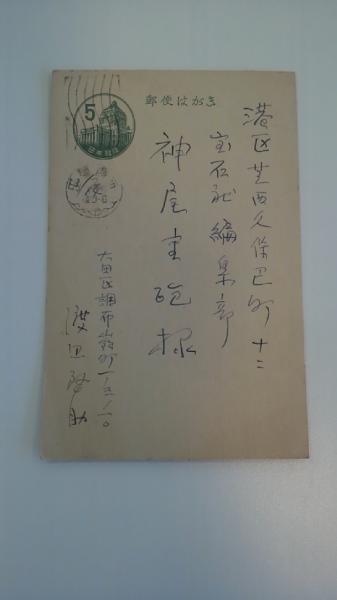 郵便はがき
5
日本郵便
港区芝西久保巴町十二
宝石社編集部
神尾重砲様
大田区調布山郭町一ノ三ノ一〇
渡辺啓助